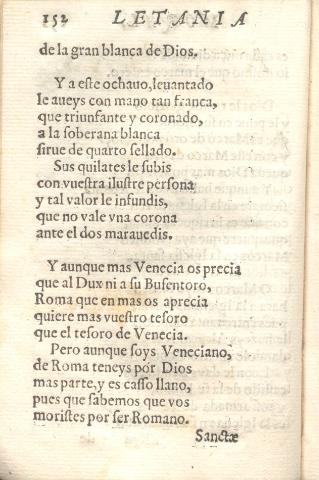 152 LETANIA
de la gran blanca de Dios.
Y a este ochauo, leuantado
le aueys con mano tan franca,
que triunfante y coronado,
a la soberana blanca
sirue de quarto sellado.
Sus quilates le subis
con vuestra ilustre persona
y tal valor le infundis,
que no vale vna corona
ante el dos marauedis.
Y aunque mas Venecia os precia
que al Dux ni a su Busentoro,
Roma que en mas os aprecia
quiere mas vuestro tesoro
que el tesoro de Venecia.
Pero aunque soys Veneciano,
de Roma teneys por Dios
mas parte, y es casso llano,
pues que sabemos que vos
moristes por ser Romano.
Sanctæ